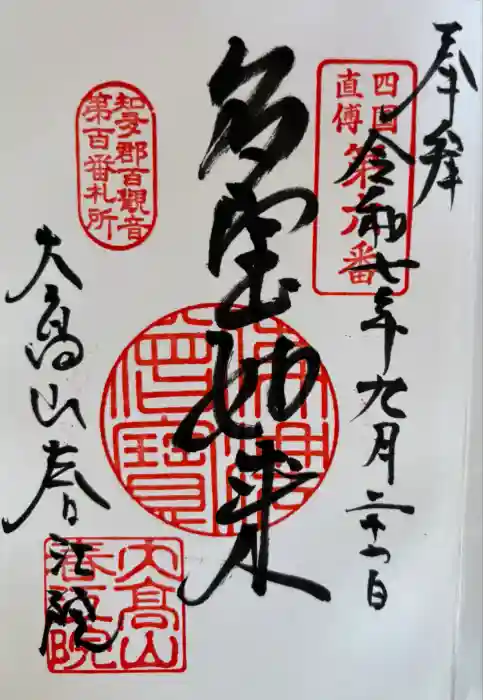 奉拝
令和七年九月二十一日
四国
直傳
第六番
多宝如来
佛法僧寶
知多郡百觀音
第百番札所
大高山春江院
大高山
春江院